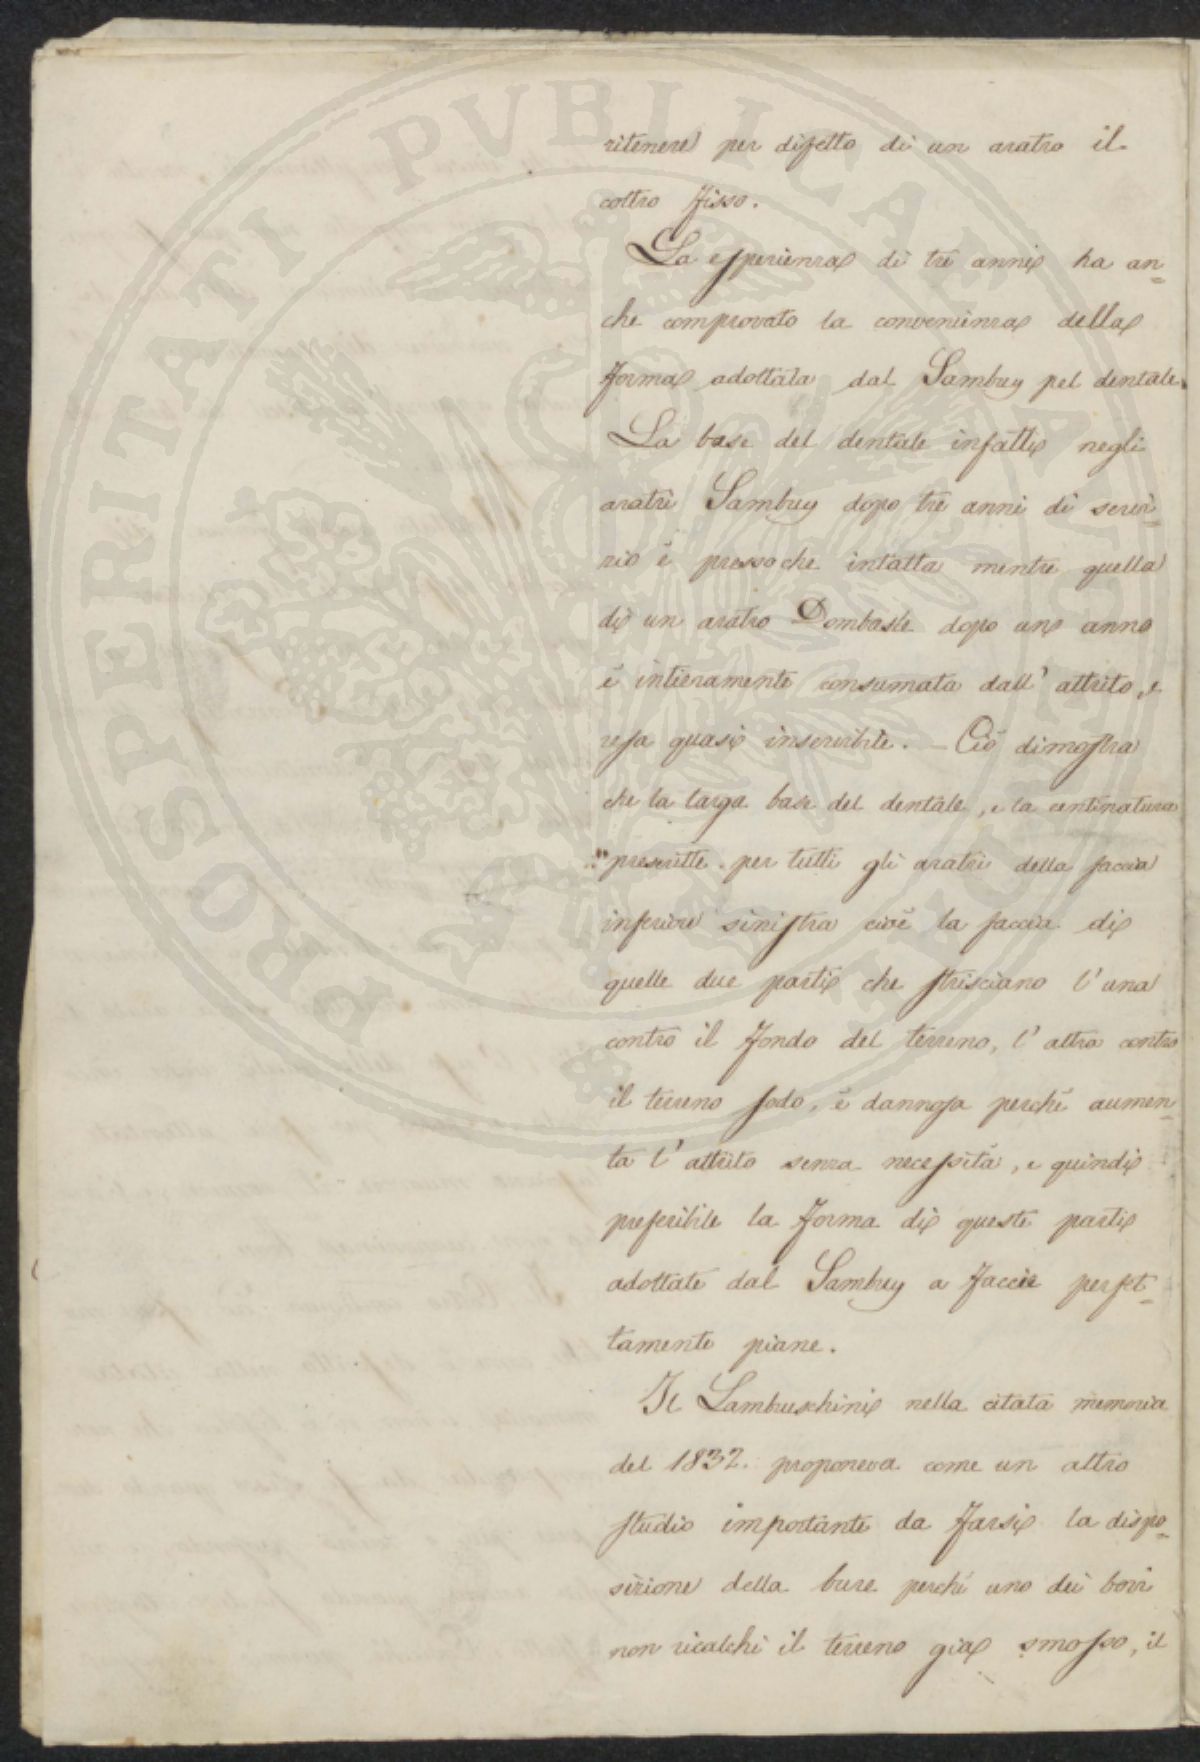 ritenere per difetto di un aratro il
coltro fisso.
La esperienza di tre anni ha an=
che comprovato la convenienza della
forma adottata dal Sambuy pel dentale.
La base del dentale infatti negli
aratri Sambuy dopo tre anni di servi=
zio è pressoche intatta mentre quella
di un aratro Dombasle dopo un anno
è intieramente consumata dall' attrito, e
resa quasi inservibile. — Ciò dimostra
che la larga base del dentale, e la centinatura
prescritte per tutti gli aratri della faccia
inferiore sinistra cioè la faccia di
quelle due parti che strisciano l' una
contro il fondo del terreno, l' altra contro
il terreno sodo, è dannosa perchè aumen=
ta l' attrito senza necessità, e quindi
preferibile la forma di queste parti
adottate dal Sambuy a faccie perfet=
tamente piane.
Il Lambruschini nella citata memoria
del 1832. proponeva come un altro
studio importante da farsi la dispo=
sizione della bure perchè uno dei bovi
non ricalchi il terreno già smosso, il
PROSPERITATI PVBLICAE AVGENDAE